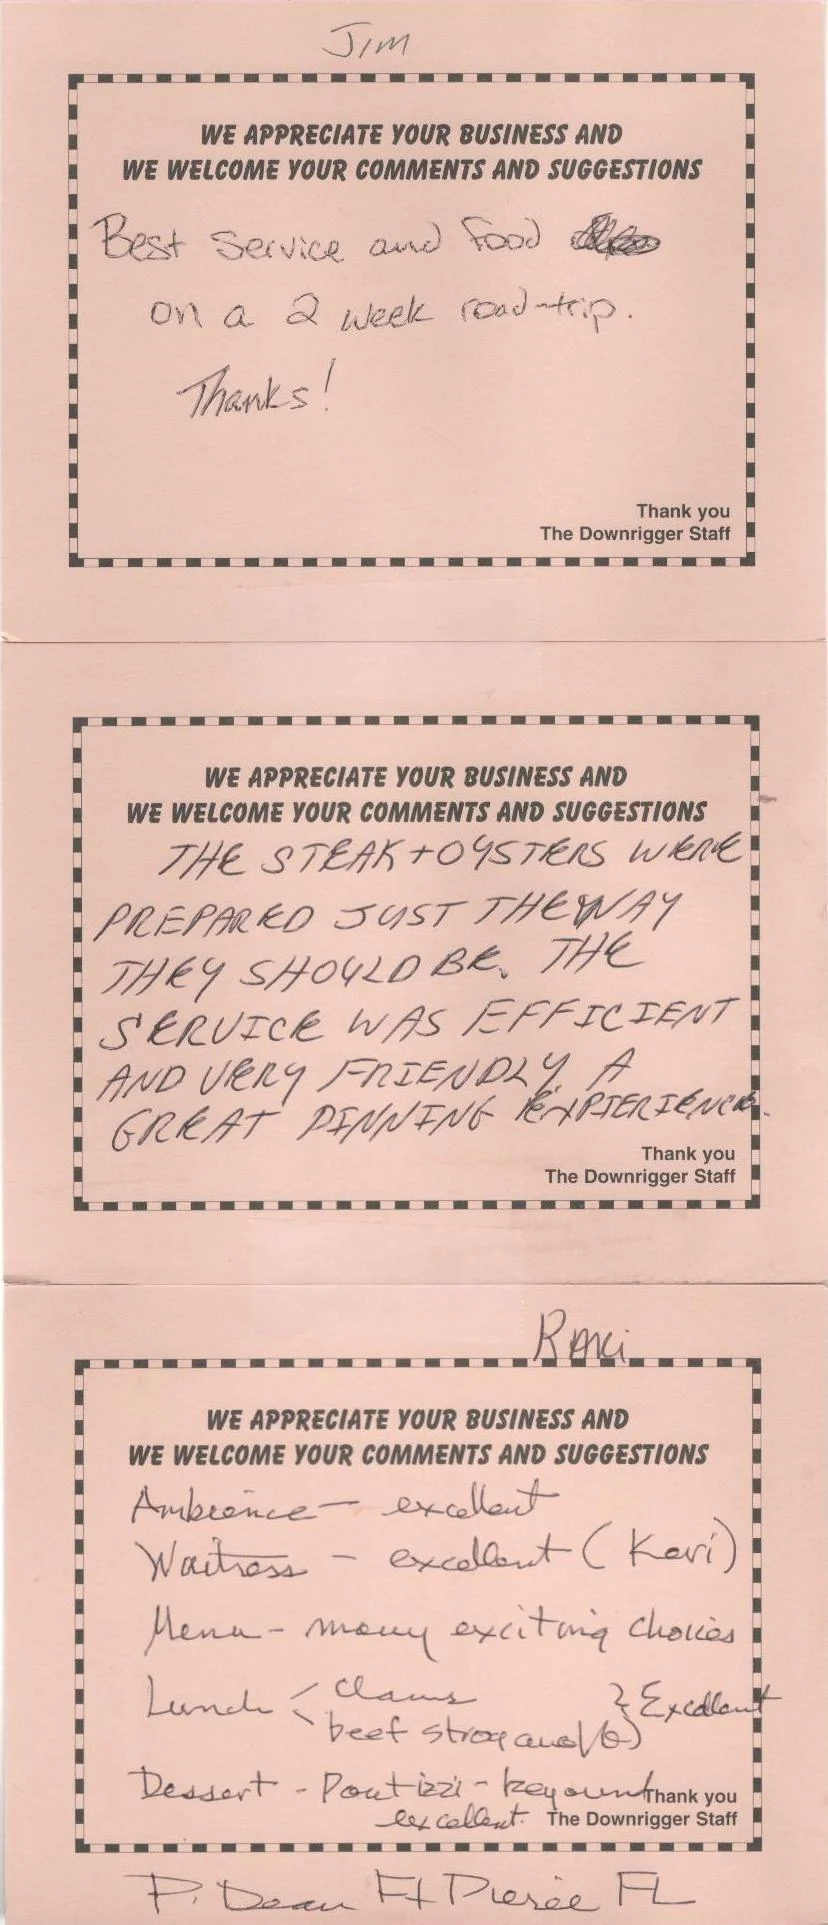 Jim
WE APPRECIATE YOUR BUSINESS AND
WE WELCOME YOUR COMMENTS AND SUGGESTIONS
Best Service and Food
on a 2 week road-trip.
Thanks!
Thank you
The Downrigger Staff
WE APPRECIATE YOUR BUSINESS AND
WE WELCOME YOUR COMMENTS AND SUGGESTIONS
THE STEAK + OYSTERS WERE
PREPARED JUST THE WAY
THEY SHOULD BE. THE
SERVICE WAS EFFICIENT
AND VERY FRIENDLY. A
GREAT DINNING EXPIERIENCE.
Thank you
The Downrigger Staff
WE APPRECIATE YOUR BUSINESS AND
WE WELCOME YOUR COMMENTS AND SUGGESTIONS
Ambience - excellent
Waitress - excellent (Kari)
Menu - many exciting choices
Lunch < clams } Excellent
beef stroganoff
Dessert - - beyound
Thank you
excellent. The Downrigger Staff
P. Dean Ft Pierce FL